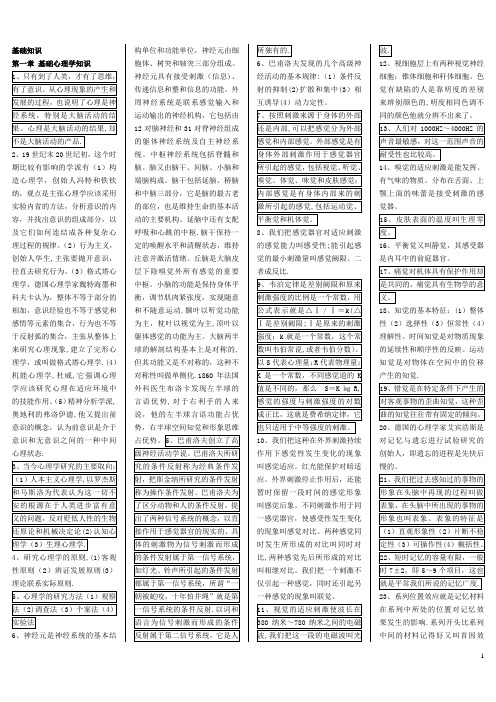 基础知识
第一章 基础心理学知识
1、只有到了人类,才有了思维,
有了意识。从心理现象的产生和
发展的过程,也说明了心理是神
经系统,特别是大脑活动的结
果。心理是大脑活动的结果,却
不是大脑活动的产品.
2、19世纪末20世纪初,这个时
期比较有影响的学派有(1)构
造心理学,创始人冯特和铁钦
纳,观点是主张心理学应该采用
实验内省的方法,分析意识的内
容,并找出意识的组成部分,以
及它们如何连结成各种复杂心
理过程的规律。(2)行为主义,
创始人华生,主张要抛开意识,
径直去研究行为。(3)格塔式心
理学,德国心理学家魏特海墨和
科夫卡认为,整体不等于部分的
相加,意识经验也不等于感觉和
感情等元素的集合,行为也不等
于反射弧的集合,主张从整体上
来研究心理现象,建立了完形心
理学,或叫做格式塔心理学.(4)
机能心理学,杜威,它强调心理
学应该研究心理在适应环境中
的技能作用。(5)精神分析学派,
奥地利的弗洛伊德,他又提出前
意识的概念,认为前意识是介于
意识和无意识之间的一种中间
心理状态.
3、当今心理学研究的主要取向:
(1)人本主义心理学,以罗杰斯
和马斯洛为代表认为这一切不
安的根源在于人类进步富有意
义的问题,反对贬低人性的生物
还原论和机械决定论(2)认知心
理学(3)生理心理学.
4、研究心理学的原则,(1)客观
性原则(2)辨证发展原则(3)
理论联系实际原则.
5、心理学的研究方法(1)观察
法(2)调查法(3)个案法(4)
实验法
6、神经元是神经系统的基本结
构单位和功能单位,神经元由细
胞体、树突和轴突三部分组成。
神经元具有接受刺激(信息)、
传递信息和整和信息的功能。外
周神经系统是联系感觉输入和
运动输出的神经机构,它包括由
12对脑神经和31对脊神经组成
的躯体神经系统及自主神经系
统。中枢神经系统包括脊髓和
脑。脑又由脑干、间脑、小脑和
端脑构成。脑干包括延脑、桥脑
和中脑三部分,它是脑的最古老
的部位,也是维持生命的基本活
动的主要机构。延脑中还有支配
呼吸和心跳的中枢.脑干保持一
定的唤醒水平和清醒状态,维持
注意并激活情绪。丘脑是大脑皮
层下除嗅觉外所有感觉的重要
中枢。小脑的功能是保持身体平
衡,调节肌肉紧张度,实现随意
和不随意运动.颞叶以听觉功能
为主,枕叶以视觉为主,顶叶以
躯体感觉的功能为主。大脑两半
球的解剖结构基本上是对称的,
但其功能又是不对称的,这种不
对称性叫做单侧化.1860年法国
外科医生布洛卡发现左半球的
言语优势,对于右利手的人来
说,他的左半球言语功能占优
势,右半球空间知觉和形象思维
占优势。5、巴甫洛夫创立了高
级神经活动学说。巴甫洛夫所研
究的条件反射称为经典条件发
射,把斯金纳所研究的条件发射
称为操作条件发射。巴甫洛夫为
了区分动物和人的条件反射,提
出了两种信号系统的概念,以直
接作用于感觉器官的现实的、具
体的刺激物为信号刺激而形成
的条件发射属于第一信号系统,
如灯光、铃声所引起的条件发射
都属于第一信号系统,所谓“一
朝被蛇咬,十年怕井绳”就是第
一信号系统的条件反射.以词和
语言为信号刺激而形成的条件
反射属于第二信号系统。它是人
所独有的.
6、巴甫洛夫发现的几个高级神
经活动的基本规律:(1)条件反
射的抑制(2)扩散和集中(3)相
互诱导(4)动力定性。
7、按照刺激来源于身体的外部
还是内部,可以把感觉分为外部
感觉和内部感觉。外部感觉是有
身体外部刺激作用于感觉器官
所引起的感觉,包括视觉、听觉、
嗅觉、体觉、味觉和皮肤感觉;
内部感觉是有身体内部来的刺
激所引起的感觉,包括运动觉、
平衡觉和机体觉。
8、我们把感觉器官对适应刺激
的感觉能力叫感受性;能引起感
觉的最小刺激量叫感觉阈限。二
者成反比.
9、韦伯定律是差别阈限和原来
刺激强度的比例是一个常数,用
公式表示就是△I/I=k(△
I是差别阈限;I是原来的刺激
强度;k就是一个常数,这个常
数叫韦伯常说,或者韦伯分数)。
以S代表心理量;R代表物理量;
K是一个常数,不同感觉道的K
值是不同的。那么 S=K lg R,
感觉的强度与刺激强度的对数
成正比。这就是费希纳定律。它
也只适用于中等强度的刺激。
10、我们把这种在外界刺激持续
作用下感觉性发生变化的现象
叫感觉适应。红光能保护对暗适
应。外界刺激停止作用后,还能
暂时保留一段时间的感觉形象
叫感觉后象。不同刺激作用于同
一感觉器官,使感受性发生变化
的现象叫感觉对比。两种感觉同
时发生所形成的对比叫同时对
比,两种感觉先后所形成的对比
叫相继对比。我们把一个刺激不
仅引起一种感觉,同时还引起另
一种感觉的现象叫联觉。
11、视觉的适应刺激使波长在
380纳米~780纳米之间的电磁
波,我们把这一段的电磁波叫光
波.
12、视细胞层上有两种视觉神经
细胞:锥体细胞和杆体细胞。色
觉有缺陷的人是靠明度的差别
来辨别颜色的,明度相同色调不
同的颜色他就分辨不出来了。
13、人们对1000HZ~4000HZ的
声音最敏感,对这一范围声音的
耐受性也比较高。
14、嗅觉的适应刺激是能发挥、
有气味的物质。分布在舌面、上
颚上面的味蕾是接受刺激的感
觉器。
15、皮肤表面的温度叫生理零
度。
16、平衡觉又叫静觉,其感受器
是内耳中的前庭器官。
17、痛觉对机体具有保护作用却
是共同的,痛觉具有生物学的意
义。
18、知觉的基本特征:(1)整体
性(2)选择性(3)恒常性(4)
理解性。时间知觉是对物质现象
的延续性和顺序性的反映。运动
知觉是对物体在空间中的位移
产生的知觉.
19、错觉是在特定条件下产生的
对客观事物的歪曲知觉,这种歪
曲的知觉往往带有固定的倾向。
20、德国的心理学家艾宾浩斯是
对记忆与遗忘进行试验研究的
创始人,即遗忘的进程是先快后
慢的。
21、我们把过去感知过的事物的
形象在头脑中再现的过程叫做
表象,在头脑中所出现的事物的
形象也叫表象。表象的特征是
(1)直观形象性(2)片断不稳
定性(3)可操作性(4)概括性.
22、短时记忆的容量有限,一般
时7±2,即5~9个项目。这也
就是平常我们所说的记忆广度.
23、系列位置效应就是记忆材料
在系列中所处的位置对记忆效
果发生的影响.系列开头比系列
中间的材料记得好又叫首因效
1